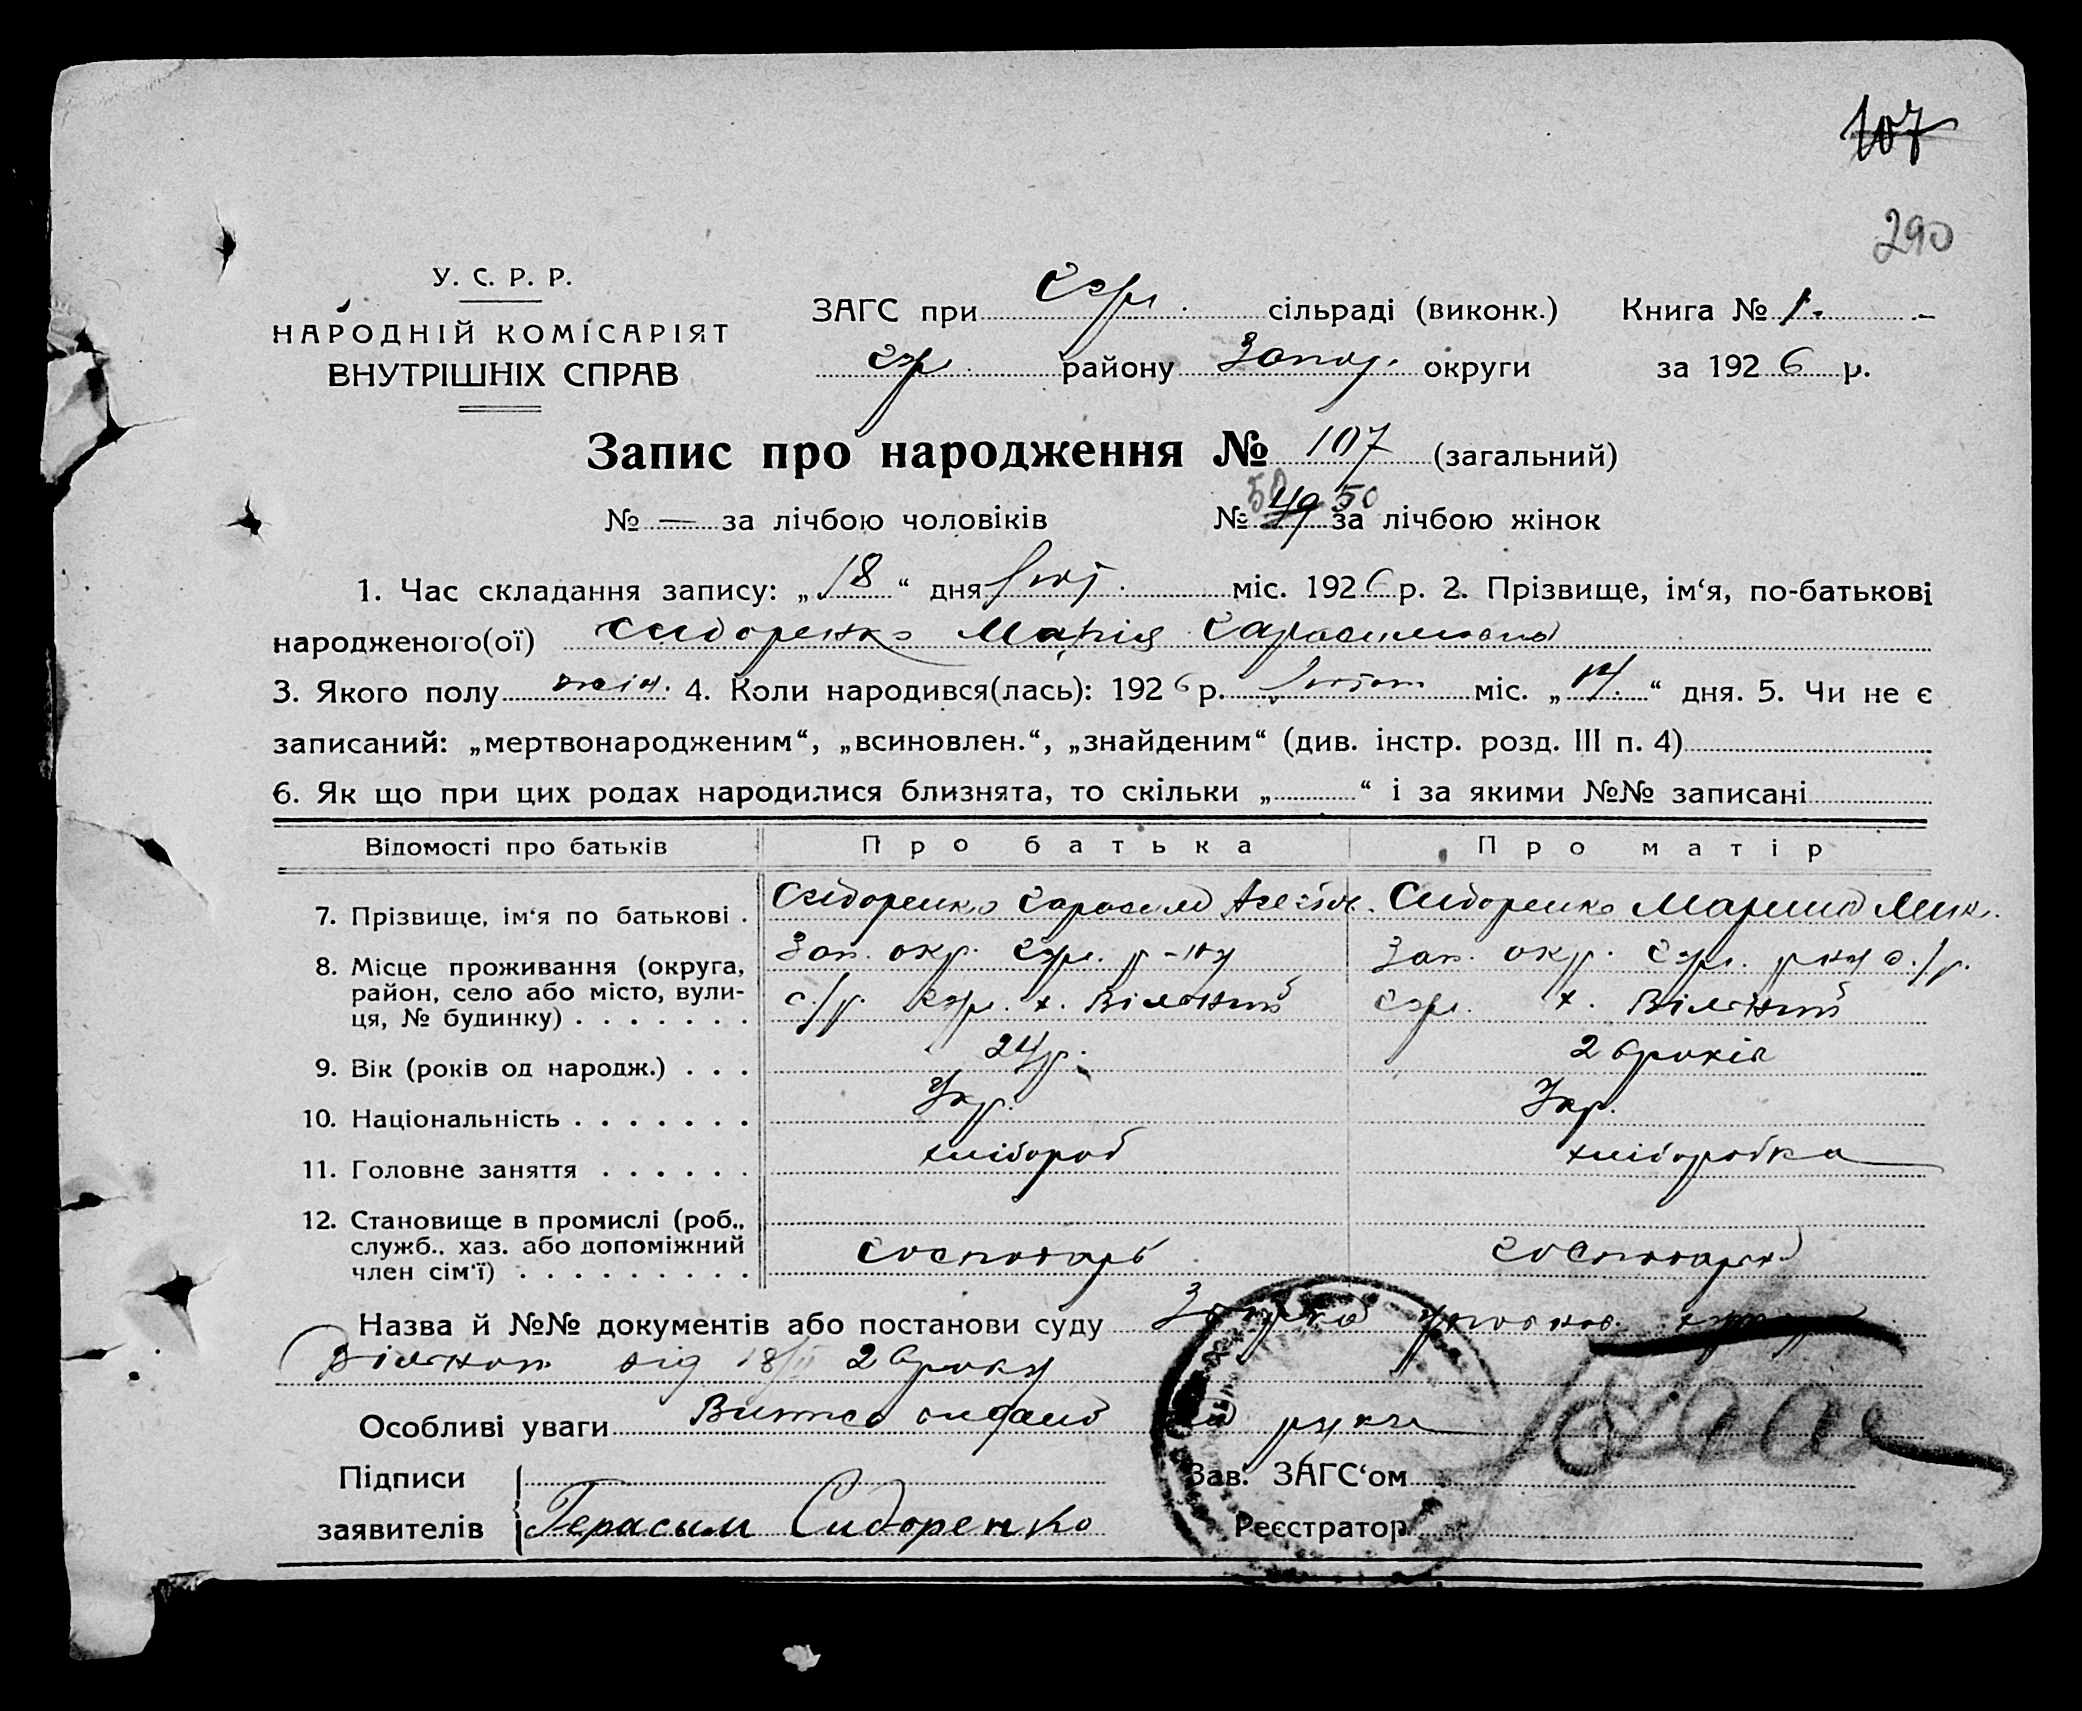 107
290
У. С. Р. Р.
НАРОДНІЙ КОМІСАРІЯТ
ВНУТРІШНІХ СПРАВ
ЗАГС при сільраді (виконк.) Книга № 1.
району Запор. округи за 1926 р.
Запис про народження № 107 (загальний)
№ — за лічбою чоловіків № 50 49 50 за лічбою жінок
1. Час складання запису: „18“ дня лют. міс. 1926 р. 2. Прізвище, ім‘я, по-батькові
народженого(ої) Сидоренко Марія Гарасимовна
3. Якого полу жін. 4. Коли народився(лась): 1926 р. лютого міс. „14.“ дня. 5. Чи не є
записаний: „мертвонародженим“, „всиновлен.“, „знайденим“ (див. інстр. розд. III п. 4)
6. Як що при цих родах народилися близнята, то скільки „ “ і за якими №№ записані
Відомості про батьків Про батька Про матір
7. Прізвище, ім‘я по батькові . Сидоренко Гарасим Сидоренко Марина Мик.
8. Місце проживання (округа, Зап. окр. р-ну Зап. окр. р-ну с./р.
район, село або місто, вули- с./р. х. Вільний х. Вільний
ця, № будинку) . . . . . . .
9. Вік (років од народж.) . . . 24 р. 26 років
10. Національність . . . . . . . Укр. Укр.
11. Головне заняття . . . . . . хлібороб хліборобка
12. Становище в промислі (роб.,
служб., хаз. або допоміжний господарь господарка
член сім‘ї) . . . . . . . . .
Назва й №№ документів або постанови суду
від 18/II 26 року
Особливі уваги Витяг видано на руки
Підписи Зав. ЗАГС‘ом
заявителів Герасим Сидоренко Реєстратор